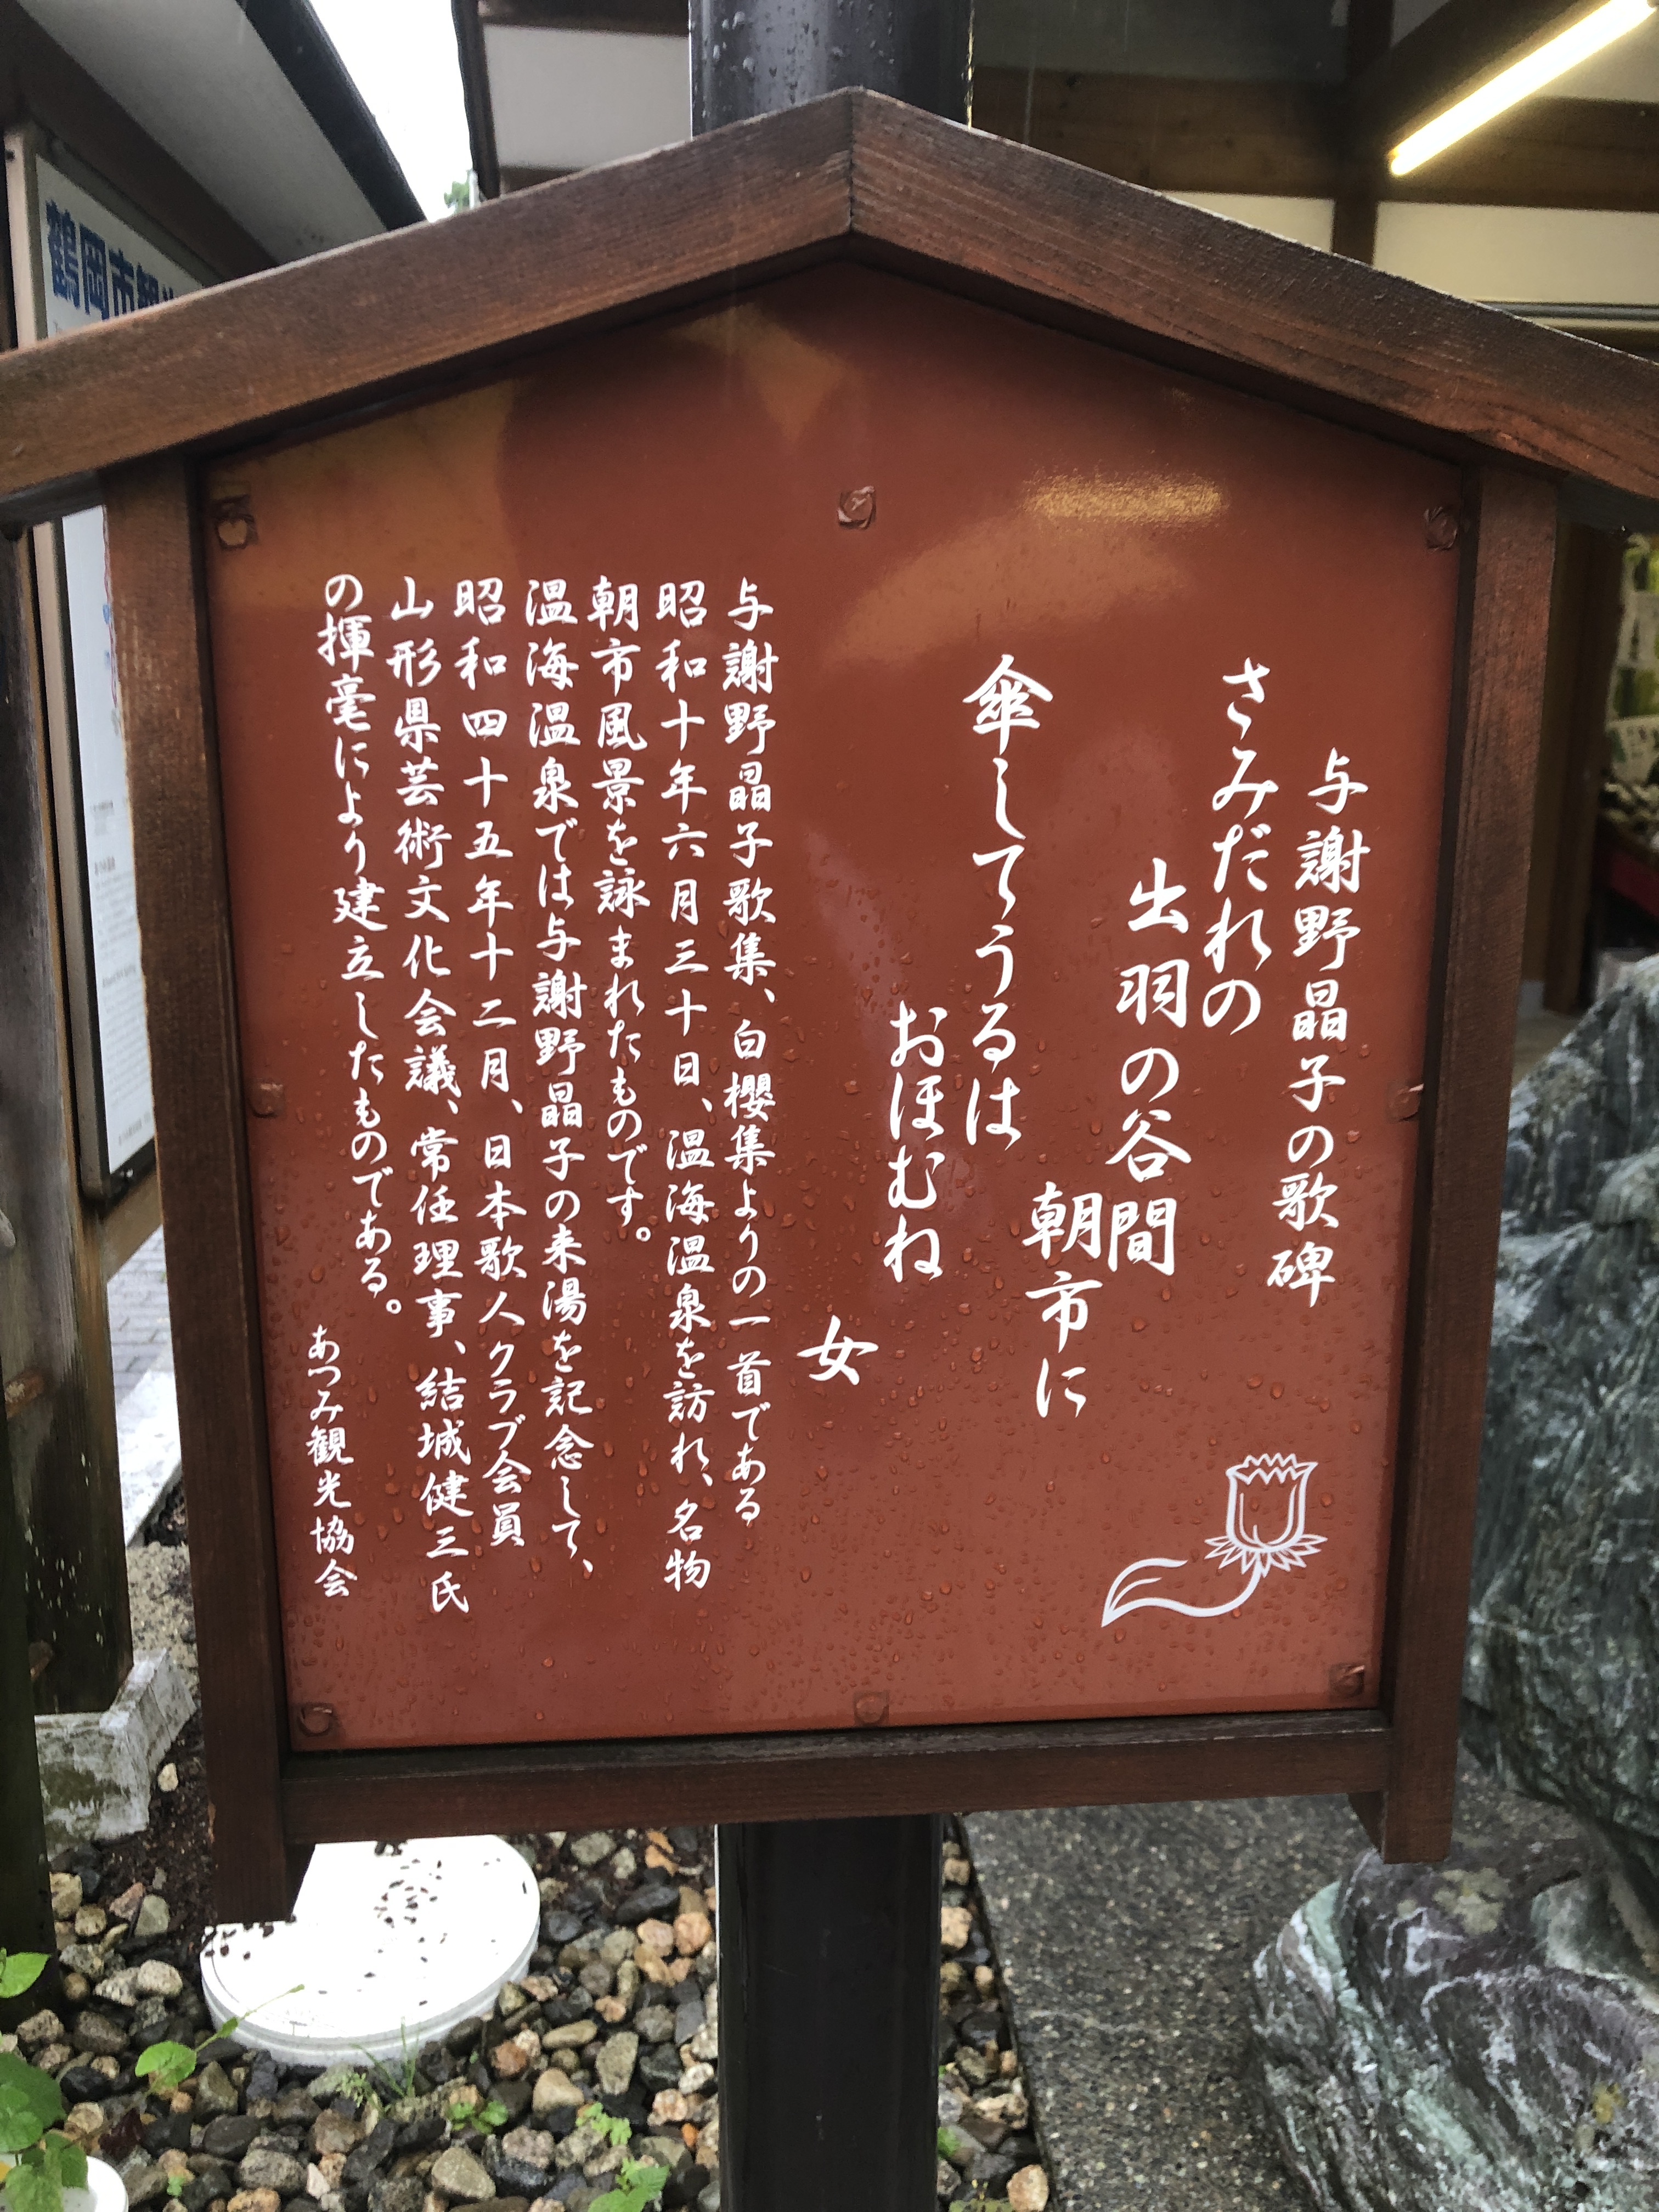 与謝野晶子の歌碑
さみだれの
出羽の谷間
朝市に
傘してうるは
おほむね
女
与謝野晶子歌集、白櫻集よりの一首である
昭和十年六月三十日、温海温泉を訪れ、名物
朝市風景を詠まれたものです。
温海温泉では与謝野晶子の来湯を記念して、
昭和四十五年十二月、日本歌人クラブ会員
山形県芸術文化会議、常任理事、結城健三氏
の揮毫により建立したものである。
あつみ観光協会
鶴岡市観